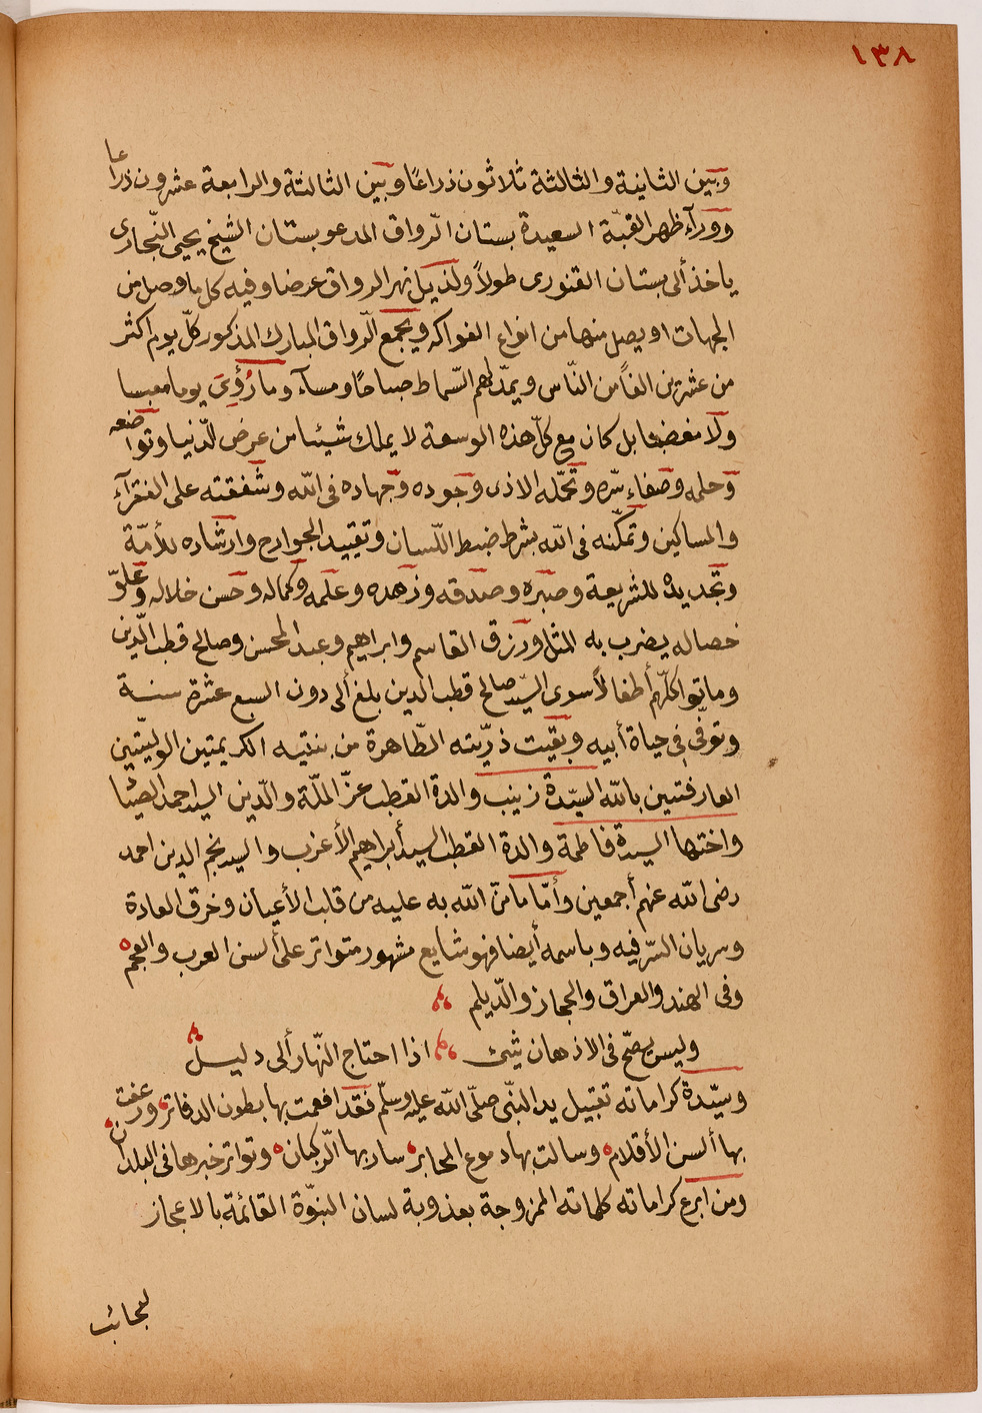 ١٣٨
وبين الثانية والثالثة ثلاثون ذراعًا وبين الثالثة والرابعة عشرون ذراعا
وورآء ظهر القبّة السعيدة بستان الرّواق المدعو بستان الشيخ يحيى النّجارى
ياخذ ألى بستان القنورى طولاً ولذيل نهر الرواق عرضا وفيه كل ما وصل من
الجهات او يصل منها من انواع الفواكه ويجمع الرّواق المبارك المذكور كلّ يوم اكثر
من عشرين الفاً من النّاس ويمدّ لهم السّماط صباحًا ومسآء وما رُؤِىَ يوما معبسا
ولا مغضبا بل كان مع كلّ هذه الوسعة لا يملك شيئا من عرض الدّنيا وتواضعه
وحلمه وصفاء سّره وتحمّله الاذى وجوده وجهاده فى الله وشفقته على الفقرآء
والمساكين وتمكّنه فى الله بشرط ضبط اللّسان وتقييد الجوارح وارشاده للأمّة
وتجديده للشريعة وصبره وصدقه وزهده وعلمه وكماله وحسن خلاله وعلوّ
خصاله يضرب به المثل ورزق القاسم وابراهيم وعبد المحسن وصالح قطب الدّين
وماتوا كلّهم أطفالاً سوى السّيد صالح قطب الدين بلغ ألى دون السبع عشرة سنة
وتوفى فى حياة أبيه وبقيت ذرّيته الطّاهرة من بنتيه الكريمتين الوليّتين
العارفتين بالله السيّدة زينب والدة القطب عزّ الملّة والدّين السيد احمد الصيّاد
واختها السيدة فاطمة والدة القطب السيد أبراهيم الأعزب والسيد نجم الدين احمد
رضى الله عنهم أجمعين وأمّا ما منّ الله به عليه من قلب الأعيان وخرق العادة
وسريان السّر فيه وباسمه أيضا فهو شايع مشهور متواتر على ألسن العرب والعجم
وفى الهند والعراق والحجاز والدّيلم
وليس يصحّ فى الاذهان شئ اذا احتاج النّهار ألى دليل
وسيّدة كراماته تقبيل يد النبّى صلّى الله عليه وسلّم فقد افعمت بها بطون الدفاتر ورعفت
بها ألسن الأقلام وسالت بها دموع المحابر سار بها الرّكبان وتواتر خبرها فى البلدان
ومن ابرع كراماته كلماته الممزوجة بعذوبة لسان النبوّة القائمة بالاعجاز
لعجائب